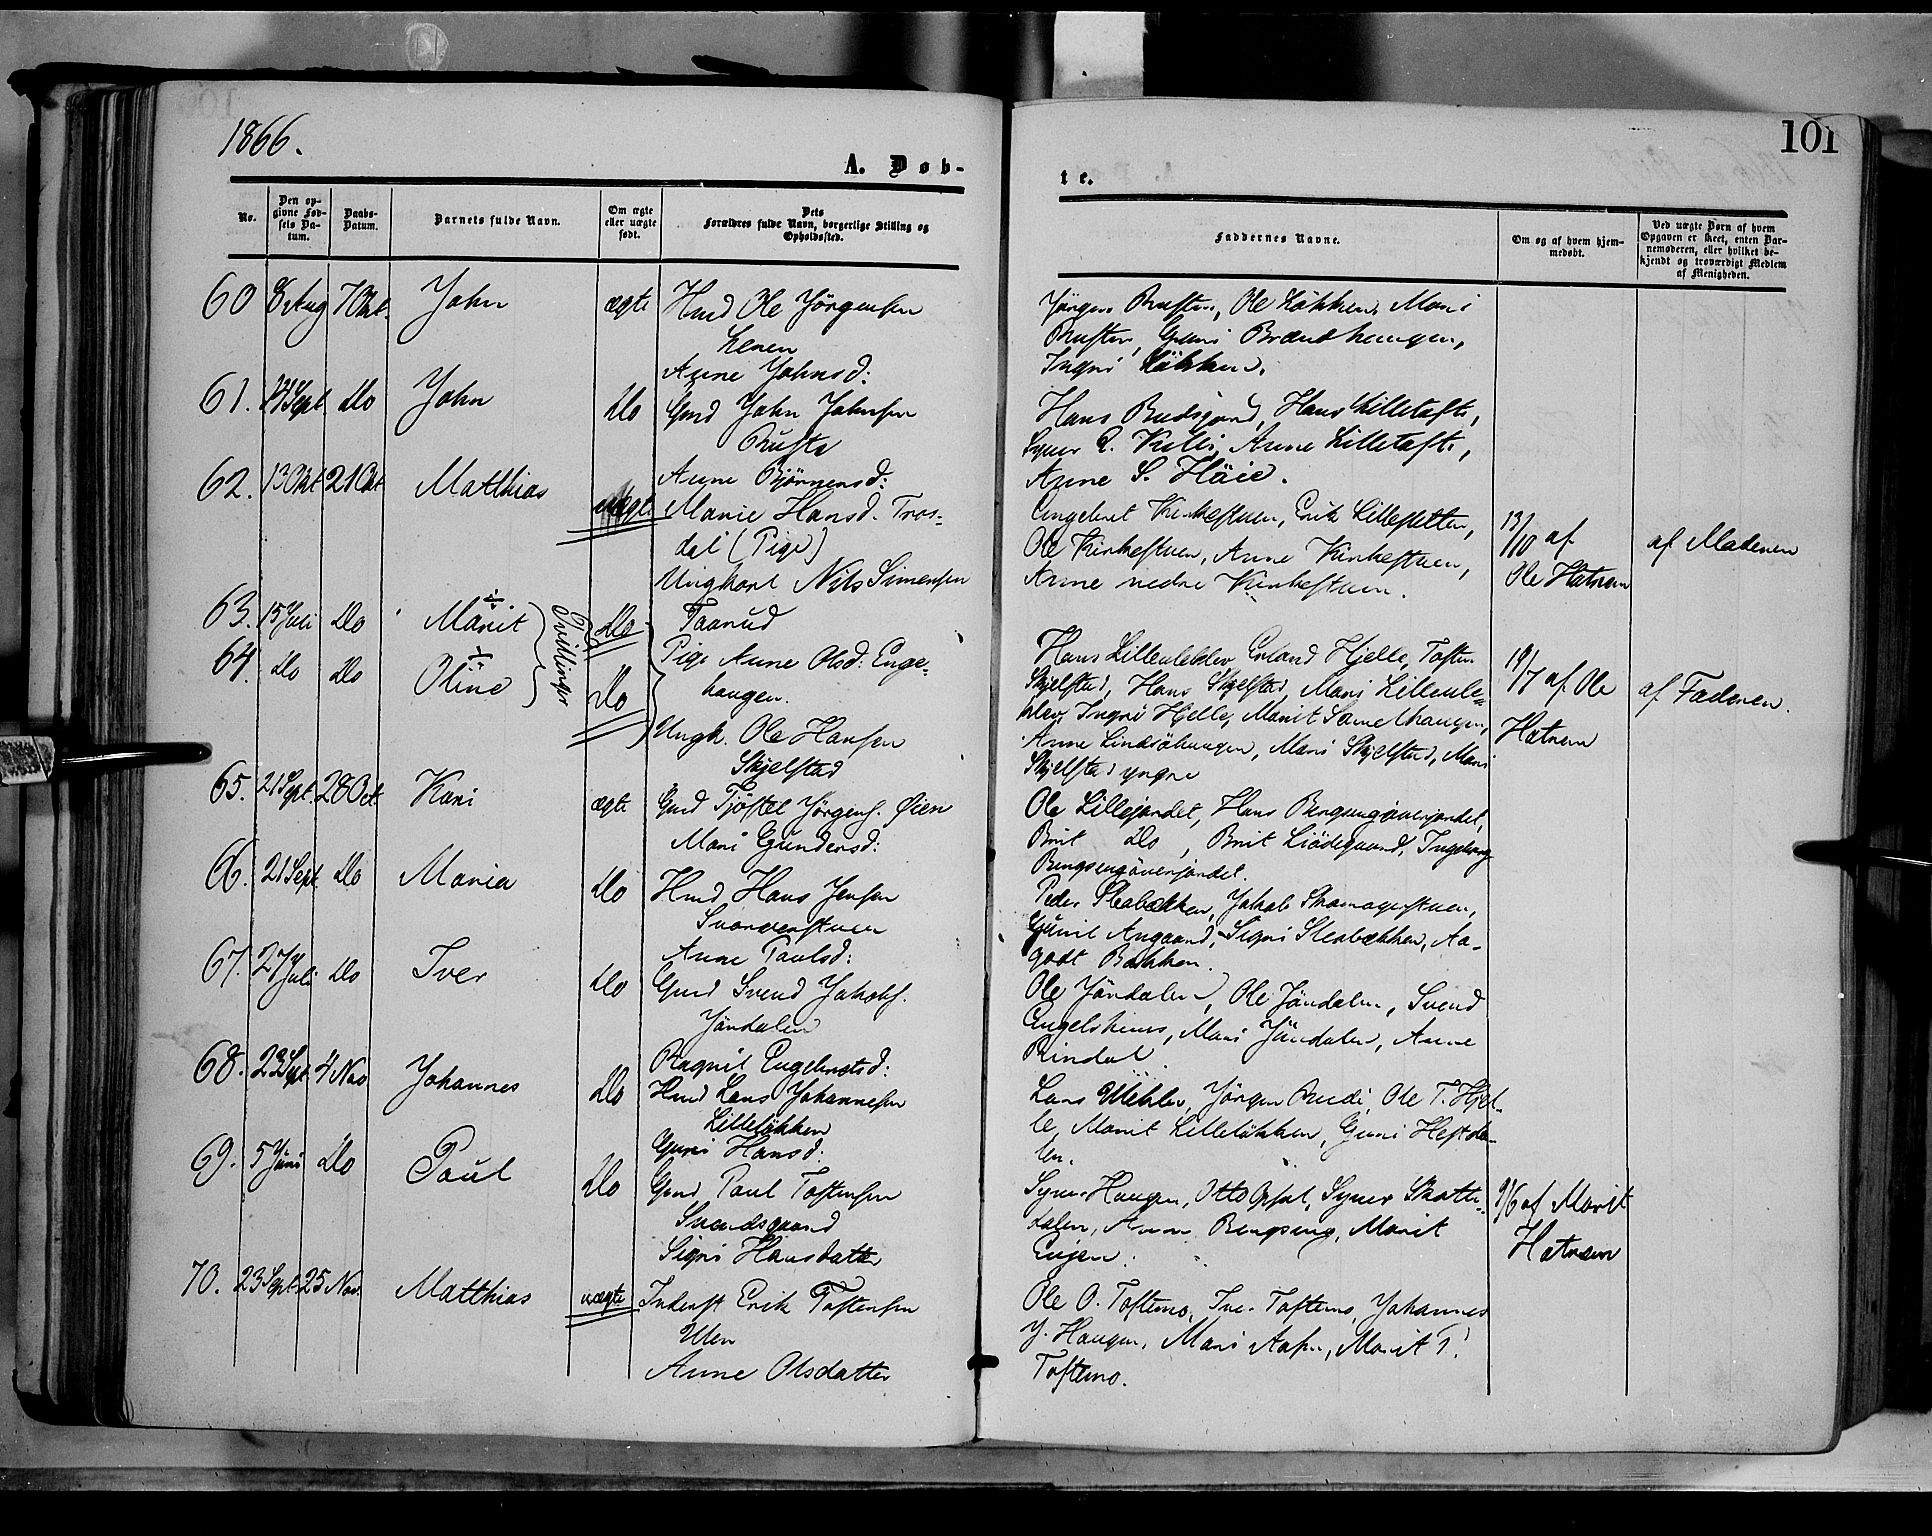 1866.
101
A. Døb-
te.
No.
Den op-
givne Fød-
sels Da-
tum.
Daabs-
Datum.
Barnets fulde Navn.
Om ægte
eller uægte
født.
Dets
Forældres fulde Navn, borgerlige Stilling og
Opholdssted.
Faddernes Navne.
Om og af hvem hjem-
medøbt.
Ved uægte Børn af hvem
Opgaven er skeet, enten Bar-
nemoderen, eller hvilket be-
kjendt og troværdigt Medlem
af Menigheden.
60 8 Aug 7 Okt. John ægte Hmd Ole Jörgensen
Lenen
Anne Johnsd:
Jörgen Rusten, Ole Lökken, Mari
Rusten, Guri Brændhaugen,
Ingri Lökken.
61. Sept. Do John Do Gmd John Johnsen
Rusta
Anne Björnersd:
Hans Budsjord, Hans Lilletafte,
Syver P. Kilei, Anne Lilletafte,
Anne S. Höie.
62. 13 Okt 21 Okt Matthias uægte Marie Hansd. Tros-
dal (Pige)
Ungkarl Nils Simensen
Taarud
Engebret Kirkestuen, Erik Lillesletten,
Ole Kirkestuen, Anne Kirkestuen,
Anne nedre Kirkestuen.
13/10 af
Ole Hatrem
af Moderen
63. 15 Juli Do Marit Do
64. Do Do Oline Tvillinger Do
Pige Anne Olsd: Enge-
haugen.
Ungk. Ole Hansen
Skjelstad
Hans Lilleuleklev, Erland Hjelle, Tosten
Skjelstad, Hans Skjelstad, Mari Lilleule-
klev, Ingri Hjelle, Marit Samelhaugen,
Anne Lindsöhaugen, Mari Skjelstad, Mari
Skjelstad yngre
19/7 af Ole
Hatrem
af Faderen.
65. 21 Sept. 28 Oct. Kari ægte Gmd Tjöstel Jörgens. Øien
Mari Gundersd:
Ole Lillejordet, Hans Bergsengöverjordet,
Brit Do, Brit Liödegaard, Ingeborg
Bergsengöverjordet.
66. 21 Sept. Do Maria Do Hmd Hans Jensen
Svarverstuen
Anne Paulsd:
Peder Sleabækken, Jakob Skomagerstuen,
Gunil Angaard, Sigri Sleabækken, Aa-
godt Bakken.
67. 27 Juli Do Iver Do Gmd Svend Jakobs.
Jöndalen
Ragnil Engebretsd:
Ole Jöndalen, Ole Jöndalen, Svend
Engelshuus, Mari Jöndalen, Anne
Rindal.
68. 23 Spt. 4 Nov Johannes Do Hmd Lars Johannesen
Lillelökken
Guri Hansd:
Lars Uleklev, Jörgen Rudi, Ole T. Hjel-
le, Marit Lillelökken, Guri Heftda-
len.
69. 5 Juni Do Paul Do Gmd Paul Tostensen
Svendsgaard
Sigri Hansdatter
Syver Haugen, Otto Opsal, Syver Skotte-
dalen, Anne Bergseng, Marit
Engen.
9/6 af Marit
Hatrem
70. 23 Sept. 25 Nov. Matthias uægte Inderst Erik Tostensen
Ulen
Anne Olsdatter
Ole O. Toftemo, Iver Toftemo, Johannes
J. Haugen, Mari Aasen, Marit T.
Toftemo.